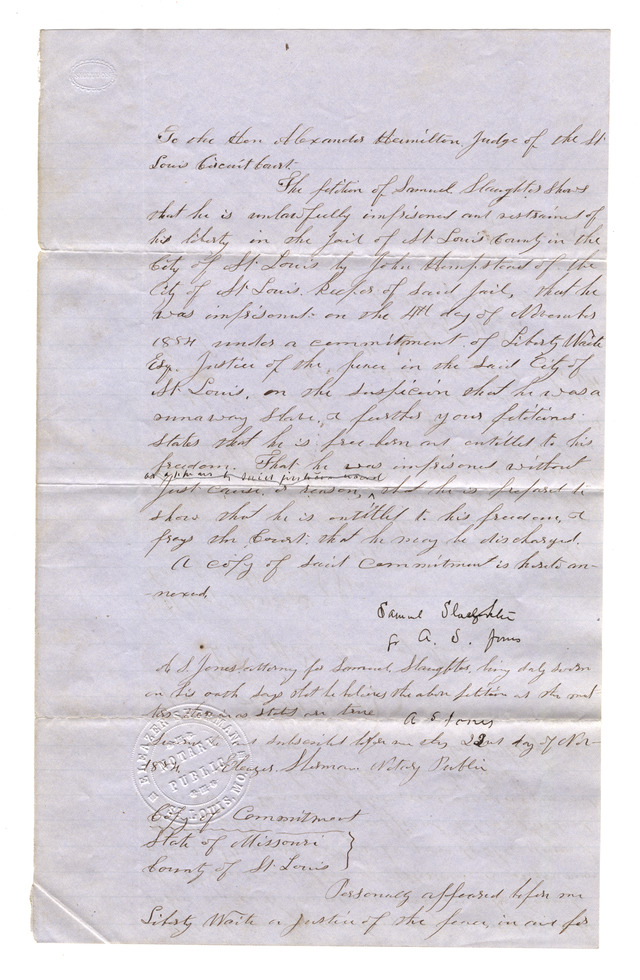 To the Hon Alexander Hamilton Judge of the St
Louis Circuit Court.
The petition of Samuel Slaughter shows
that he is unlawfully imprisoned and restrained of
his liberty in the Jail of St Louis County in the
City of St Louis by John Hempstead of the
City of St Louis keeper of said Jail, that he
was imprisoned on the 4th day of November
1854 under a commitment of Liberty Waite
Esq. Justice of the peace in the said City of
St Louis, on the suspicion that he was a
runaway slave, & further your petitioner
states that he is free born and entitled to his
freedom. That he was imprisoned without
just cause, or reason, that he is prepared to
show that he is entitled to his freedom, &
prays the Court that he may be discharged.
A copy of said commitment is hereto an-
nexed
Samuel Slaughter
A. S. Jones
A S Jones attorney for Samuel Slaughter, being duly sworn
on his oath says that he believes the above petition as the
stated are true
A S Jones
subscribed before me this 22nd day of Nov
1854 Eleazer Sherman Notary Public
ELEAZER SHERMAN
NOTARY
PUBLIC
ST LOUIS MO
Copy of Commitment
State of Missouri
County of St Louis
Personally appeared before me
Liberty Waite a Justice of the peace, in and for